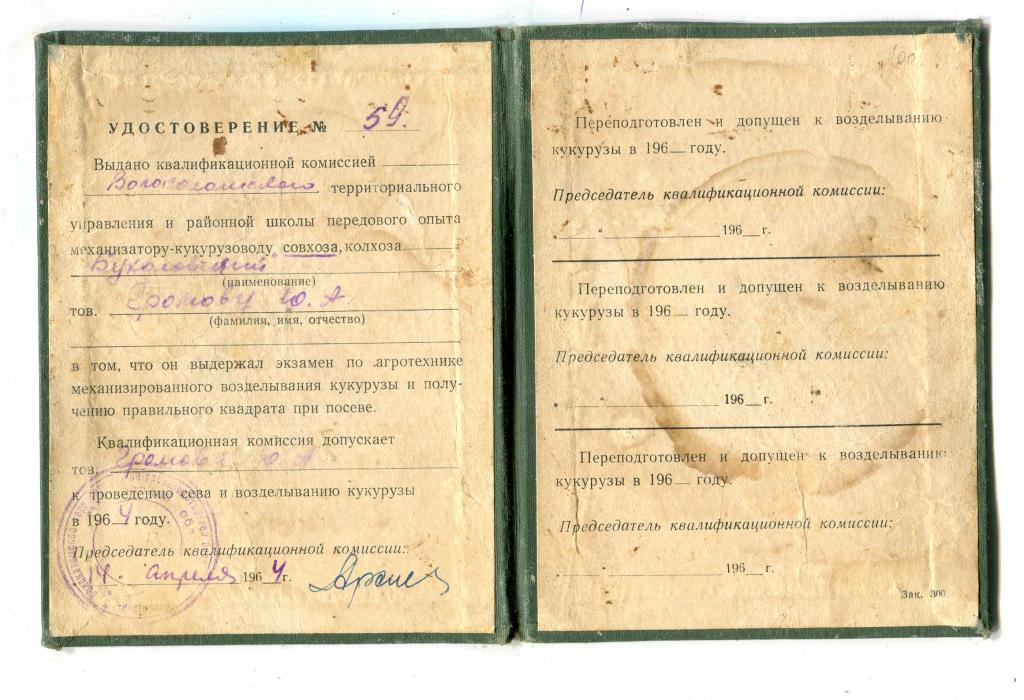 УДОСТОВЕРЕНИЕ № 59.
Выдано квалификационной комиссией
Волоколамского территориального
управления и районной школы передового опыта
механизатору-кукурузоводу совхоза, колхоза
"Бухоловский"
(наименование)
тов. Громову Ю. А
(фамилия, имя, отчество)
в том, что он выдержал экзамен по агротехнике
механизированного возделывания кукурузы и полу-
чению правильного квадрата при посеве.
Квалификационная комиссия допускает
тов. Громова Ю А
к проведению сева и возделыванию кукурузы
в 1964 году.
Председатель квалификационной комиссии:
" апреля 1964 г.
100
Переподготовлен и допущен к возделыванию
кукурузы в 196 году.
Председатель квалификационной комиссии:
" " 196 г.
Переподготовлен и допущен к возделыванию
кукурузы в 196 году.
Председатель квалификационной комиссии:
" " 196 г.
Переподготовлен и допущен к возделыванию
кукурузы в 196 году.
Председатель квалификационной комиссии:
" " 196 г.
Зак. 300